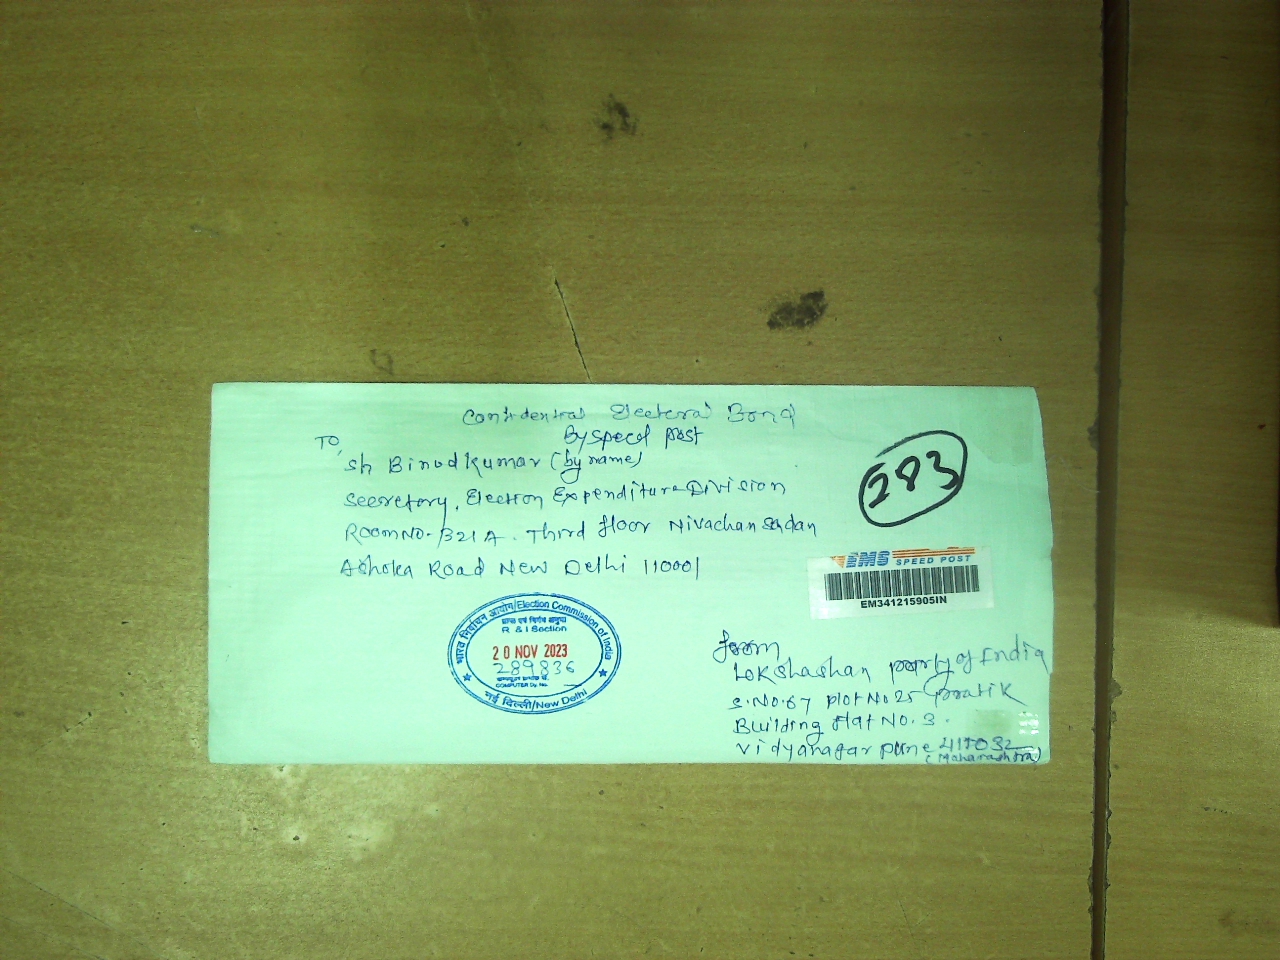 Confidential Electoral Bond
By speed post
TO,
sh Binod kumar (by name)
Secretory, Election Expenditure Division
Room No. 321 A. Third floor Nivachan sadan
Ashoka Road New Delhi 110001
283
EMS SPEED POST
EM341215905IN
भारत निर्वाचन आयोग/Election Commission of India
R & I Section
20 NOV 2023
289836
COMPUTER Dy. No.
नई दिल्ली/New Delhi
from
Lokshashan party of India
S.No.67 plot No 25 Pratik
Building flat No. 3.
Vidyanagar pune 411032
(Maharashtra)